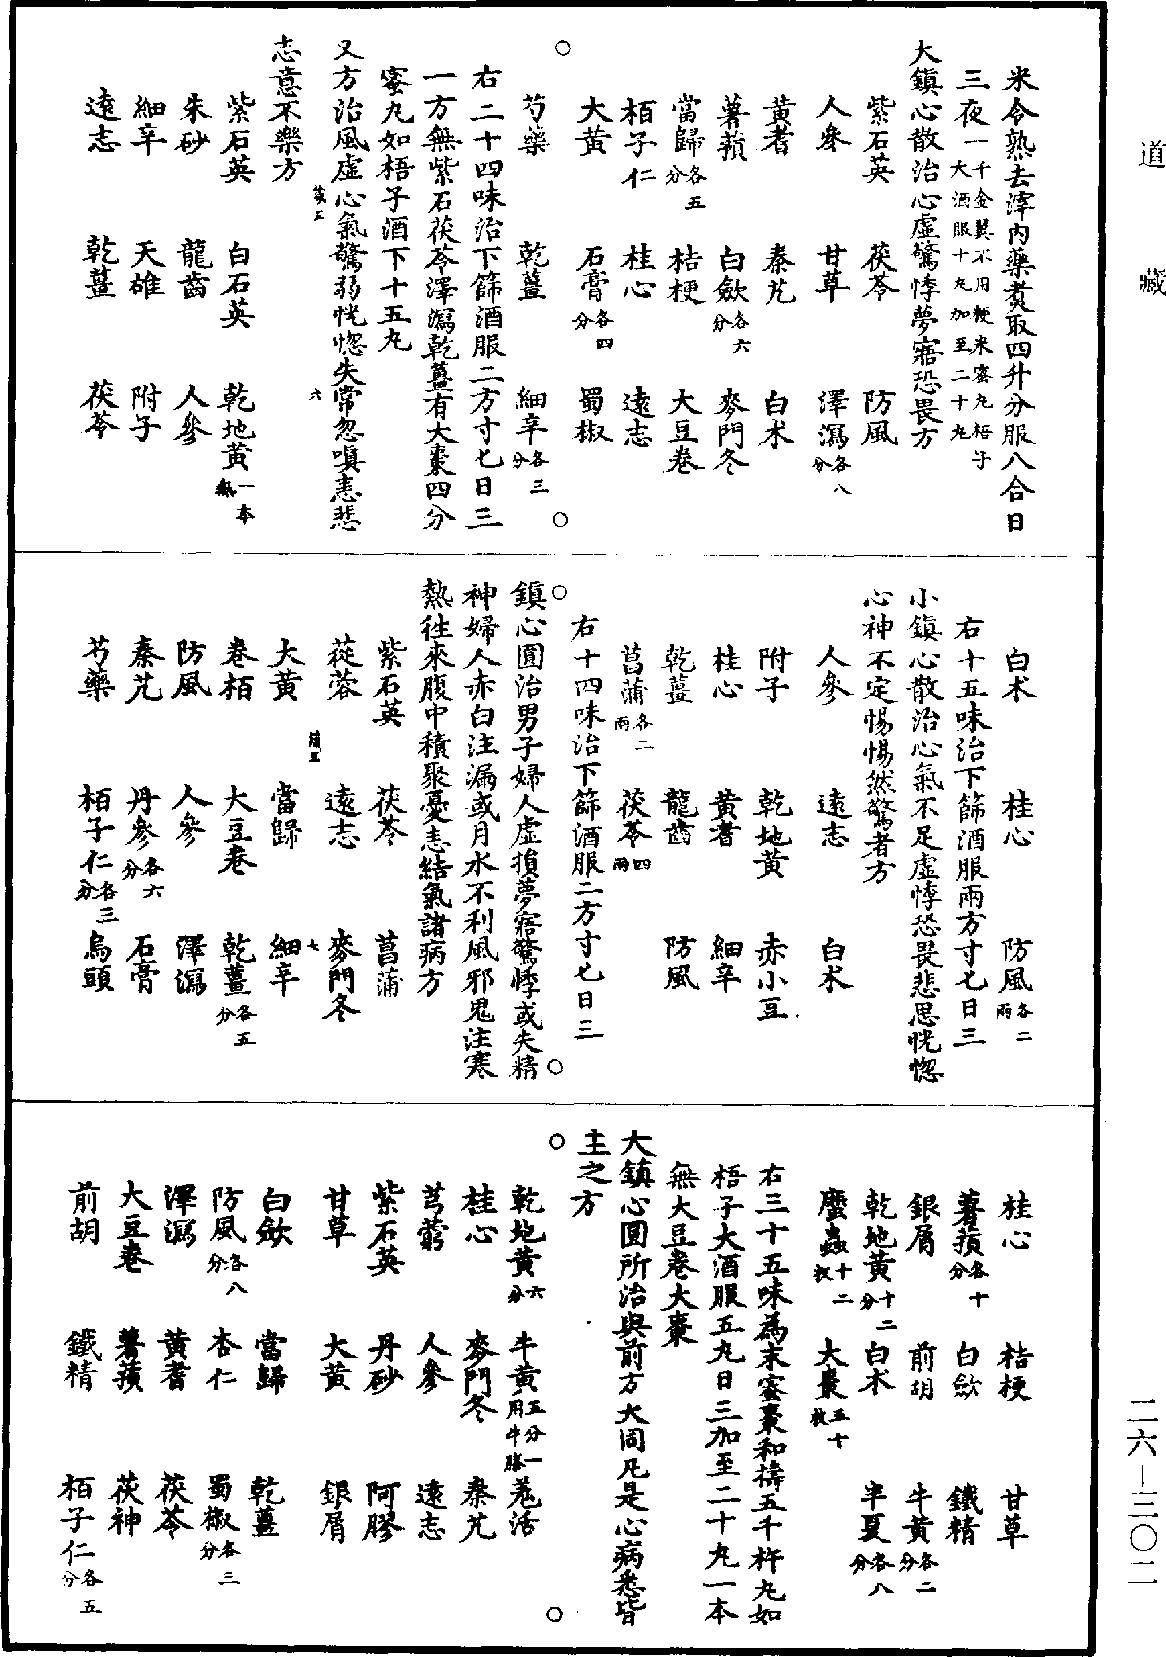 道藏
米令熟去滓內藥煑取四升分服八合日
三夜一千金翼不用粳米蜜丸梧子大酒服十丸加至二十丸
大鎮心散治心虛驚悸夢寤恐畏方
紫石英 茯苓 防風
人參 甘草 澤瀉各八分
黃耆 秦艽 白术
薯蕷 白斂各六分 麥門冬
當歸各五分 桔梗 大豆卷
栢子仁 桂心 遠志
大黃 石膏各四分 蜀椒
芍藥 乾薑 細辛各三分
右二十四味治下篩酒服二方寸匕日三
一方無紫石茯苓澤瀉乾薑有大棗四分
蜜丸如梧子酒下十五丸
又方治風虛心氣驚弱恍惚失常忽嗔恚悲
志意不樂方
紫石英 白石英 乾地黃一本無
朱砂 龍齒 人參
細辛 天雄 附子
遠志 乾薑 茯苓
白术 桂心 防風各二兩
右十五味治下篩酒服兩方寸匕日三
小鎮心散治心氣不足虛悸恐畏悲思恍惚
心神不定惕惕然驚者方
人參 遠志 白术
附子 乾地黃 赤小豆
桂心 黃耆 細辛
乾薑 龍齒 防風
菖蒲各二兩 茯苓四兩
右十四味治下篩酒服二方寸匕日三
鎮心圓治男子婦人虛損夢寤驚悸或失精
神婦人赤白注漏或月水不利風邪鬼注寒
熱往來腹中積聚憂恚結氣諸病方
紫石英 茯苓 菖蒲
蓯蓉 遠志 麥門冬
大黃 當歸 細辛
卷栢 大豆卷 乾薑各五分
防風 人參 澤瀉
秦艽 丹參各六分 石膏
芍藥 栢子仁各三分 烏頭
桂心 桔梗 甘草
薯蕷各十分 白斂 鐵精
銀屑 前胡 牛黃各二分
乾地黃十二分 白术 半夏各八分
䗪蟲十二枚 大棗五十枚
右三十五味為末蜜棗和擣五千杵丸如
梧子大酒服五丸日三加至二十丸一本
無大豆卷大棗
大鎮心圓所治與前方大同凡是心病悉皆
主之方
乾地黃六分 牛黃五分一用牛膝 羗活
桂心 麥門冬 秦艽
芎藭 人參 遠志
紫石英 丹砂 阿膠
甘草 大黃 銀屑
白斂 當歸 乾薑
防風各八分 杏仁 蜀椒各三分
澤瀉 黃耆 茯苓
大豆卷 薯蕷 茯神
前胡 鐵精 栢子仁各五分
二六—三〇二